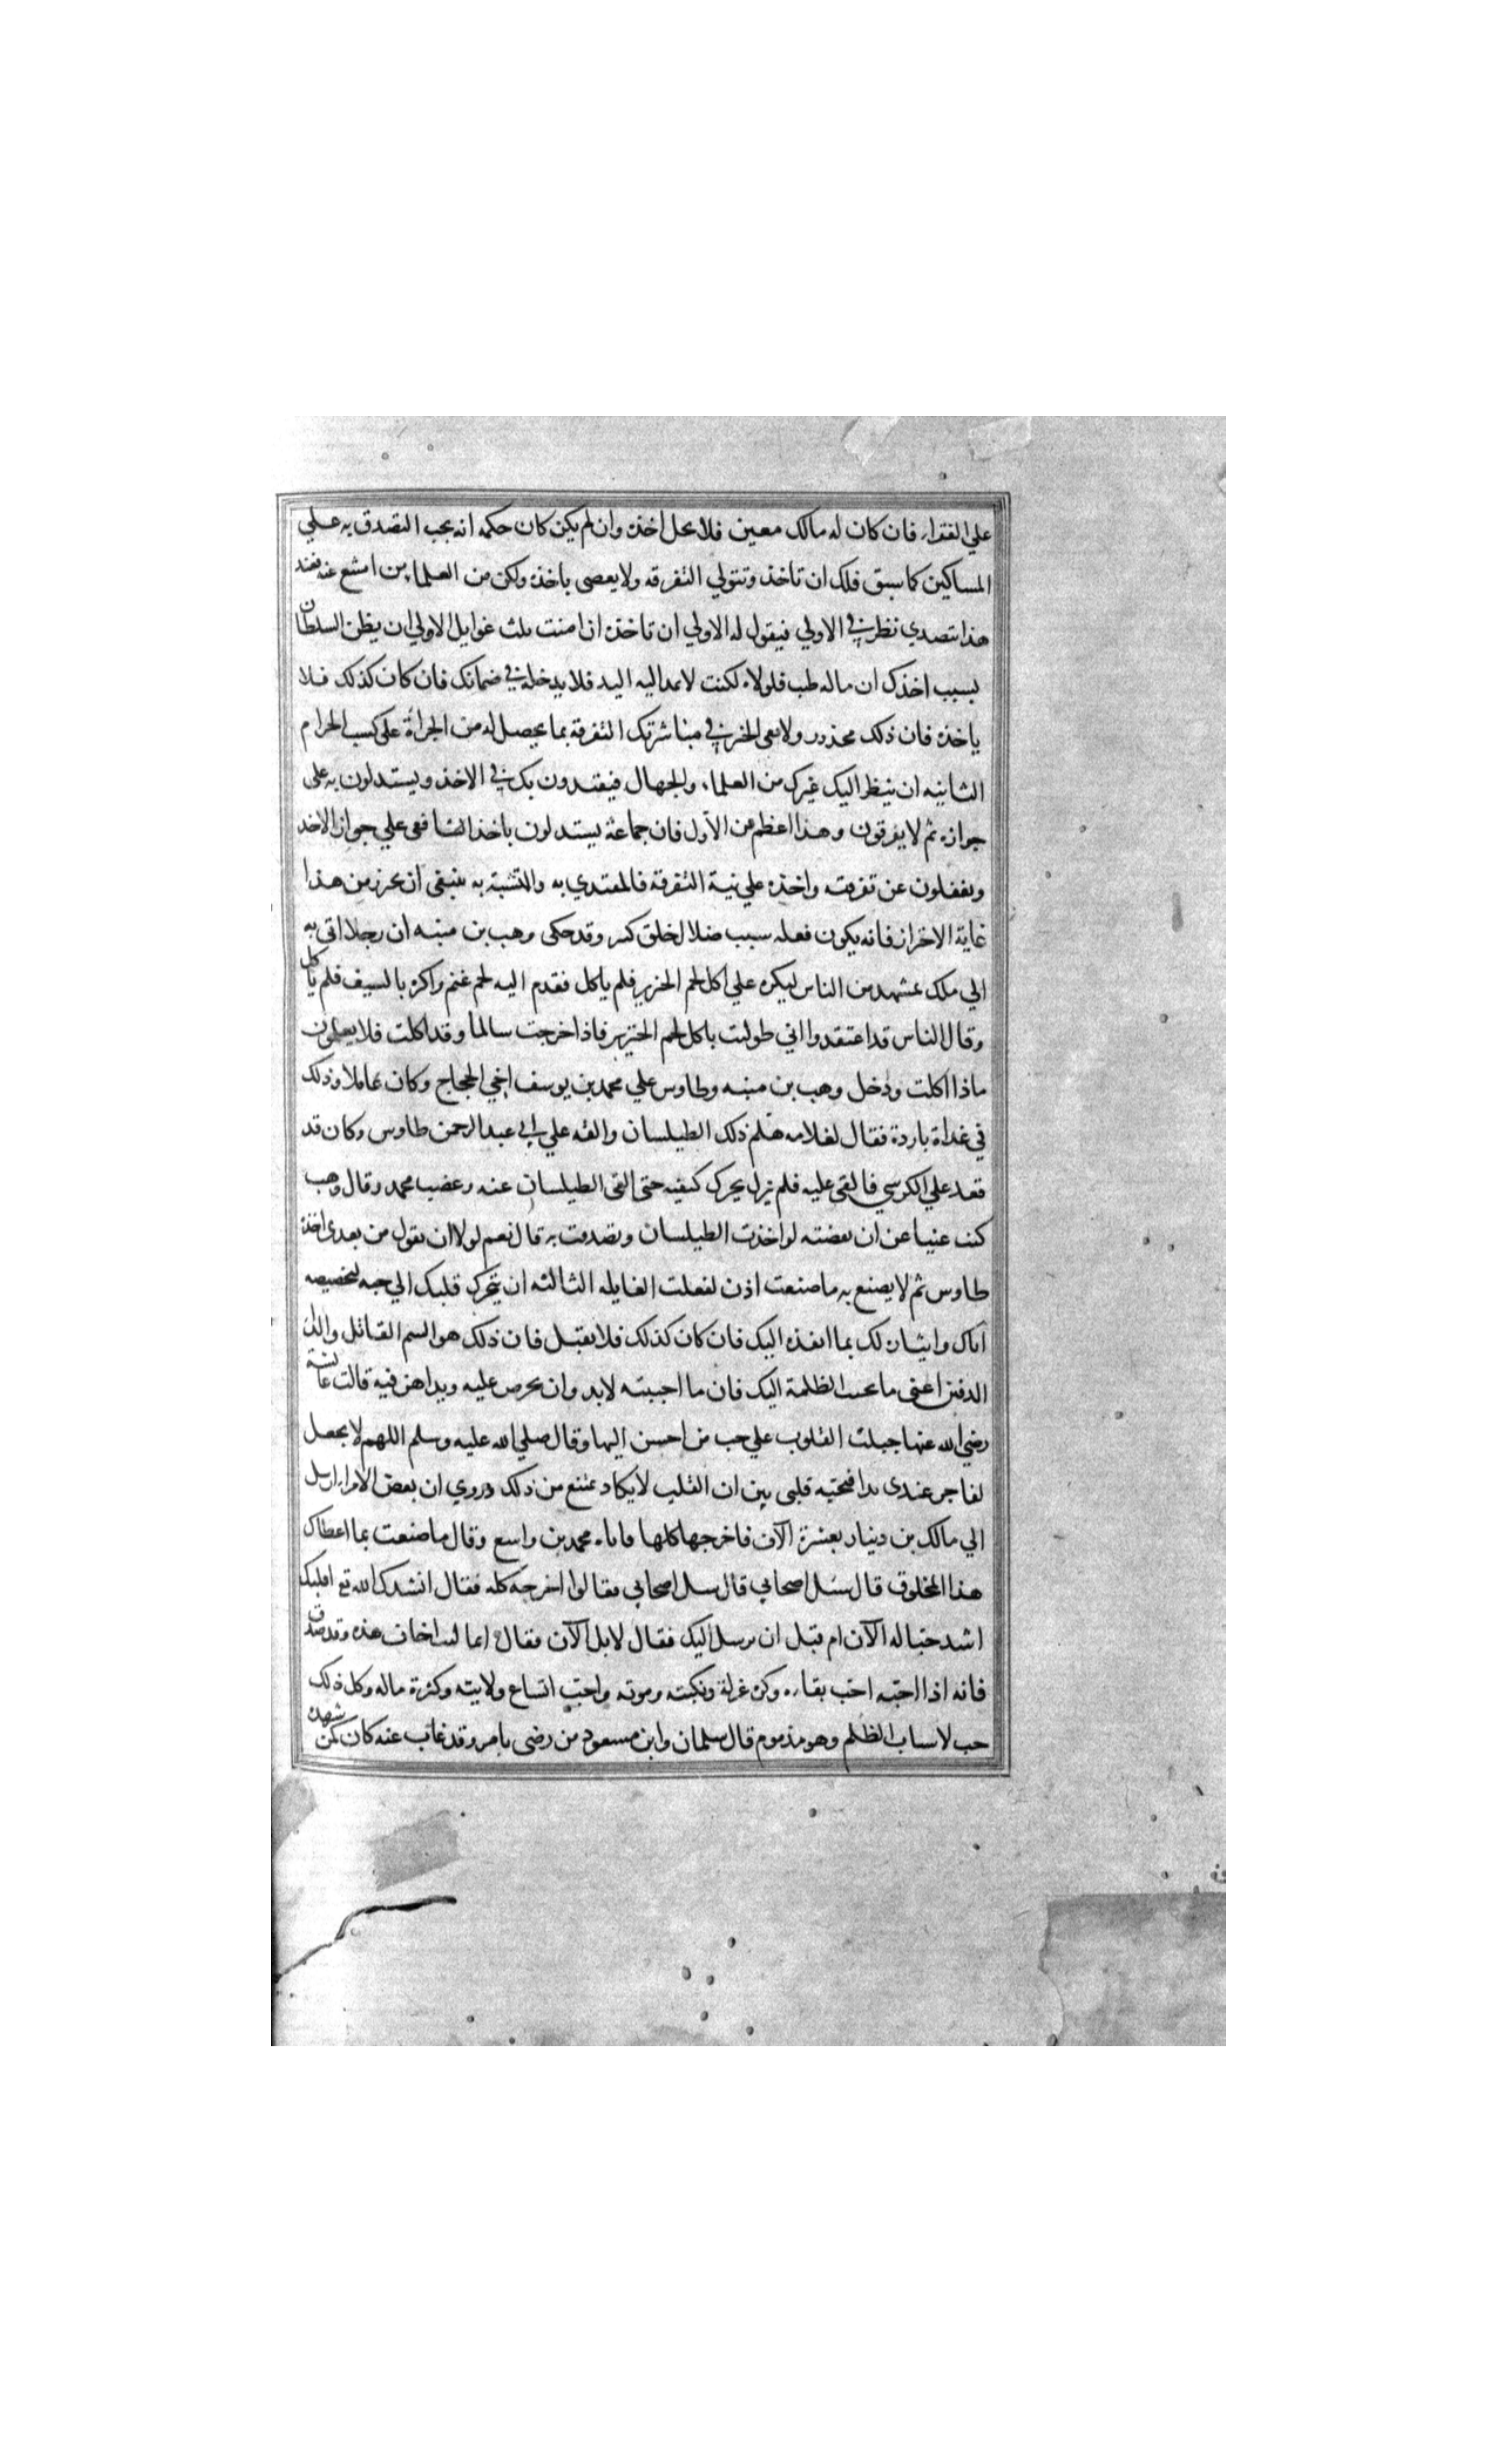 علي الفقراء فان كان له مالك معين فلا يحل اخذه وان لم يكن كان حكمه انه يجب التصدق به علي
المساكين كما سبق فلك ان تاخذ وتتولي التفرقه ولا يعصى باخذه ولكن من العلماء من امتنع عنه فعند
هذا يتصدي نظر في الاولي فيقول له الاولي ان تاخذه ان امنت ثلث غوايل الاولي ان يظن السلطان
بسبب اخذك ان ماله طب فلولاه لكنت لا تمد اليه اليد فلا يدخله في ضمانك فان كان كذلك فلا
ياخذه فان ذلك محذور ولا يفي الخير في مباشرتك التفرقة بما يحصل له من الجراة علي كسب الحرام
الثانيه ان ينظر اليك غيرك من العلماء والجهال فيقتدون بك في الاخذ ويستدلون به علي
جوازه ثم لا يفرقون وهذا اعظم من الأول فان جماعة يستدلون باخذ الشافعي علي جواز الاخذ
ويغفلون عن تفرقته واخذه علي نية التفرقة فالمقتدي به والتشبة به ينبغي ان يحرز من هذا
غاية الاحتراز فانه يكون فعله سبب ضلال خلق كثير وقد حكى وهب بن منبه ان رجلا اتي به
الي ملك بمشهد من الناس ليكره علي اكل لحم الخنزير فلم ياكل فقدم اليه لحم غنم واكره بالسيف فلم ياكل
وقال الناس قد اعتقدوا اني طولبت باكل لحم الخنزير فاذا خرجت سالما وقد اكلت فلا يعلمون
ماذا اكلت ودخل وهب بن منبه وطاوس علي محمد بن يوسف اخي الحجاج وكان عاملا وذلك
في غداة باردة فقال لغلامه هلم ذلك الطيلسان والقه علي ابي عبد الرحمن طاوس وكان قد
قعد علي الكرسي فالقي عليه فلم يزل يحرك كتفيه حتى القى الطيلسان عنه وغضب محمد وقال وهب
كنت غنيا عن ان تغضبه لو اخذت الطيلسان وتصدقت به قال نعم لولا ان يقول من بعدي اخذه
طاوس ثم لا يصنع به ما صنعت اذن لفعلت الغايله الثالثه ان يتحرك قلبك الي حبه لتخصيصه
اياك وايثاره لك بما انفذه اليك فان كان كذلك فلا يقبل فان ذلك هو السم القاتل والداء
الدفين اعني ما يحبب الظلمة اليك فان ما احببته لابد وان يحرص عليه ويداهن فيه قالت عائشة
رضي الله عنها جبلت القلوب علي حب من احسن اليها وقال صلي الله عليه وسلم اللهم لا يجعل
لفاجر عندي يدا فيحبه قلبي بين ان القلب لا يكاد يمتنع من ذلك وروي ان بعض الامراء ارسل
الي مالك بن دينار بعشرة الآف فاخرجها كلها فاتاه محمد بن واسع وقال ما صنعت بما اعطاك
هذا المخلوق قال سل اصحابي قال سل اصحابي فقالوا اخرجه كله فقال انشدك الله تع اقلبك
اشد حبا له الآن ام قبل ان يرسل اليك فقال لا بل الآن فقال انما كنت اخاف هذه وقد صدق
فانه اذا احبه احب بقاءه وكره عزله ونكبته وموته واحب اتساع ولايته وكثرة ماله وكل ذلك
حب لاسباب الظلم وهو مذموم قال سلمان وابن مسعود من رضي بامر وقد غاب عنه كان كمن شهده